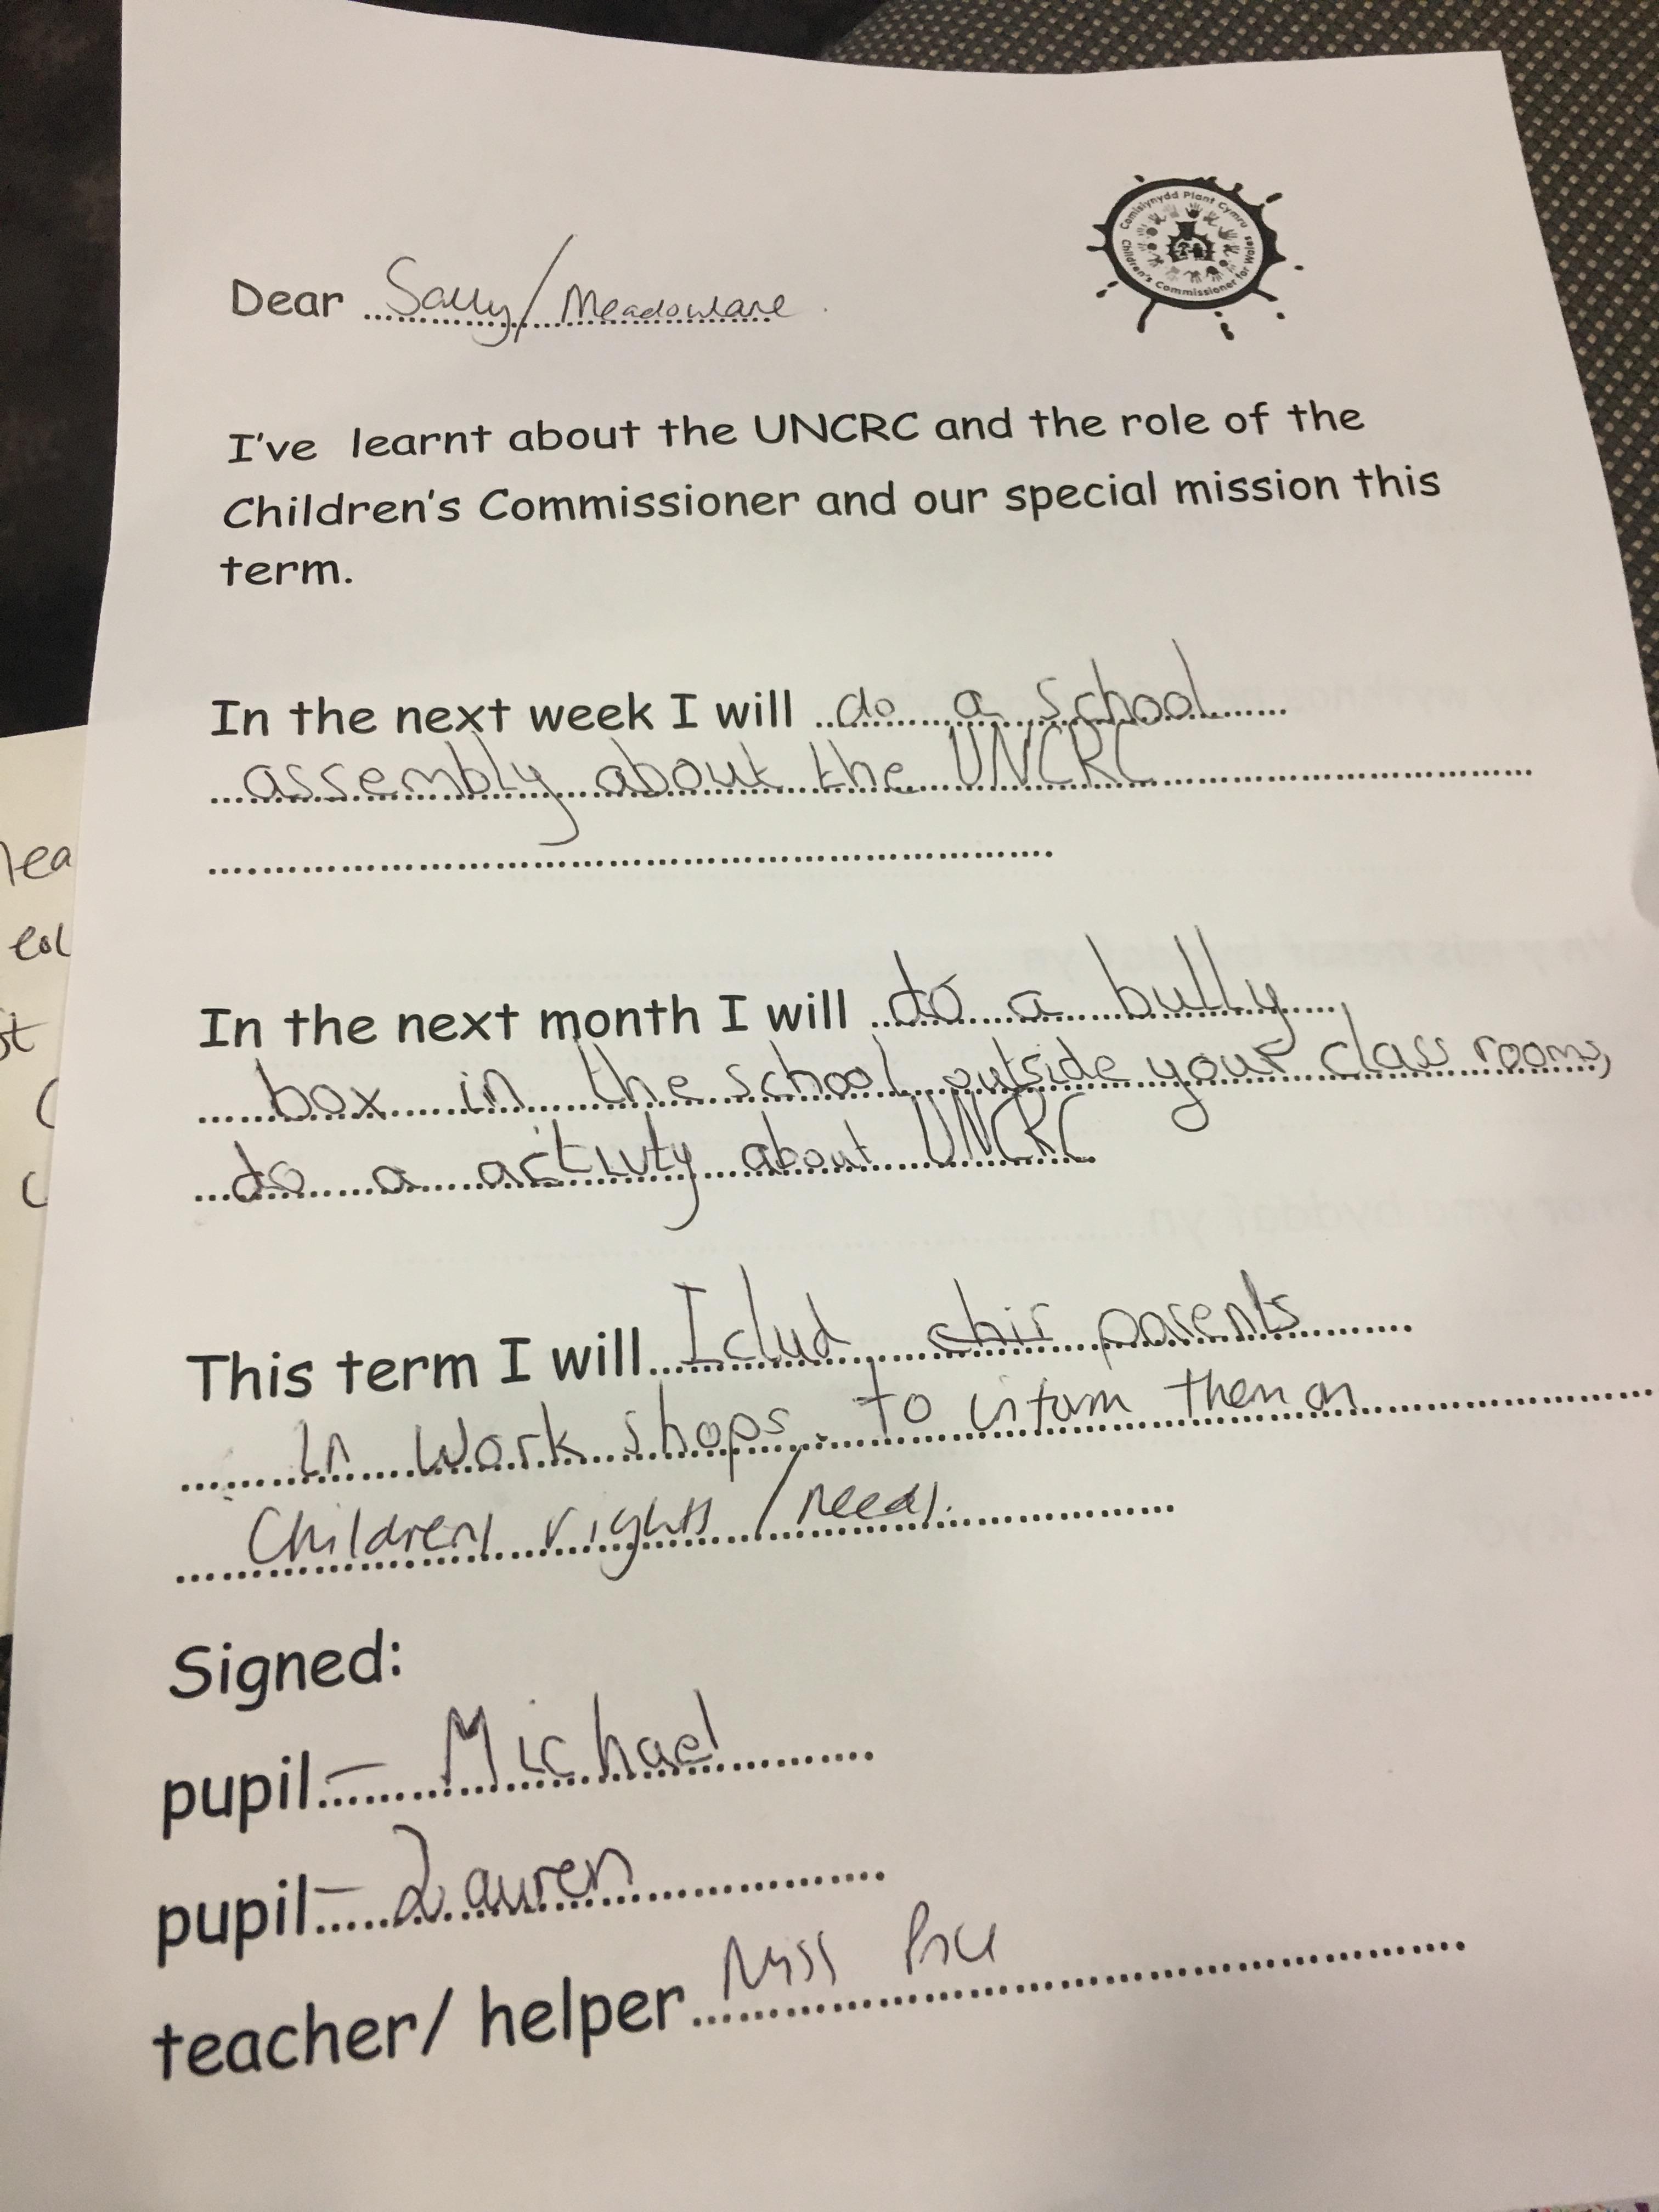 Comisiynydd Plant Cymru
Children's Commissioner for Wales
Dear Sally/Meadowlane
I've learnt about the UNCRC and the role of the
Children's Commissioner and our special mission this
term.
In the next week I will do a school
assembly about the UNCRC
In the next month I will do a bully
box in the school outside your class rooms,
do a activty about UNCRC
This term I will Iclud parents
In Work shops. To inform them on
Childrens rights/needs.
Signed:
pupil - Michael
pupil - Lauren
teacher/ helper Miss Price